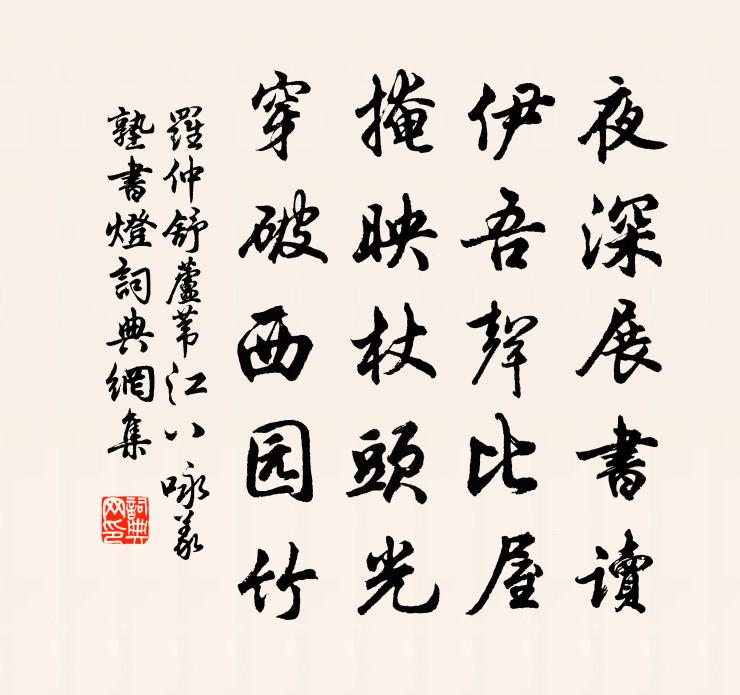 夜深展書讀
伊吾聲比屋
掩映杖頭光
穿破西园竹
羅仲舒蘆葦江八咏義
塾書燈詞典網集
詞典网印